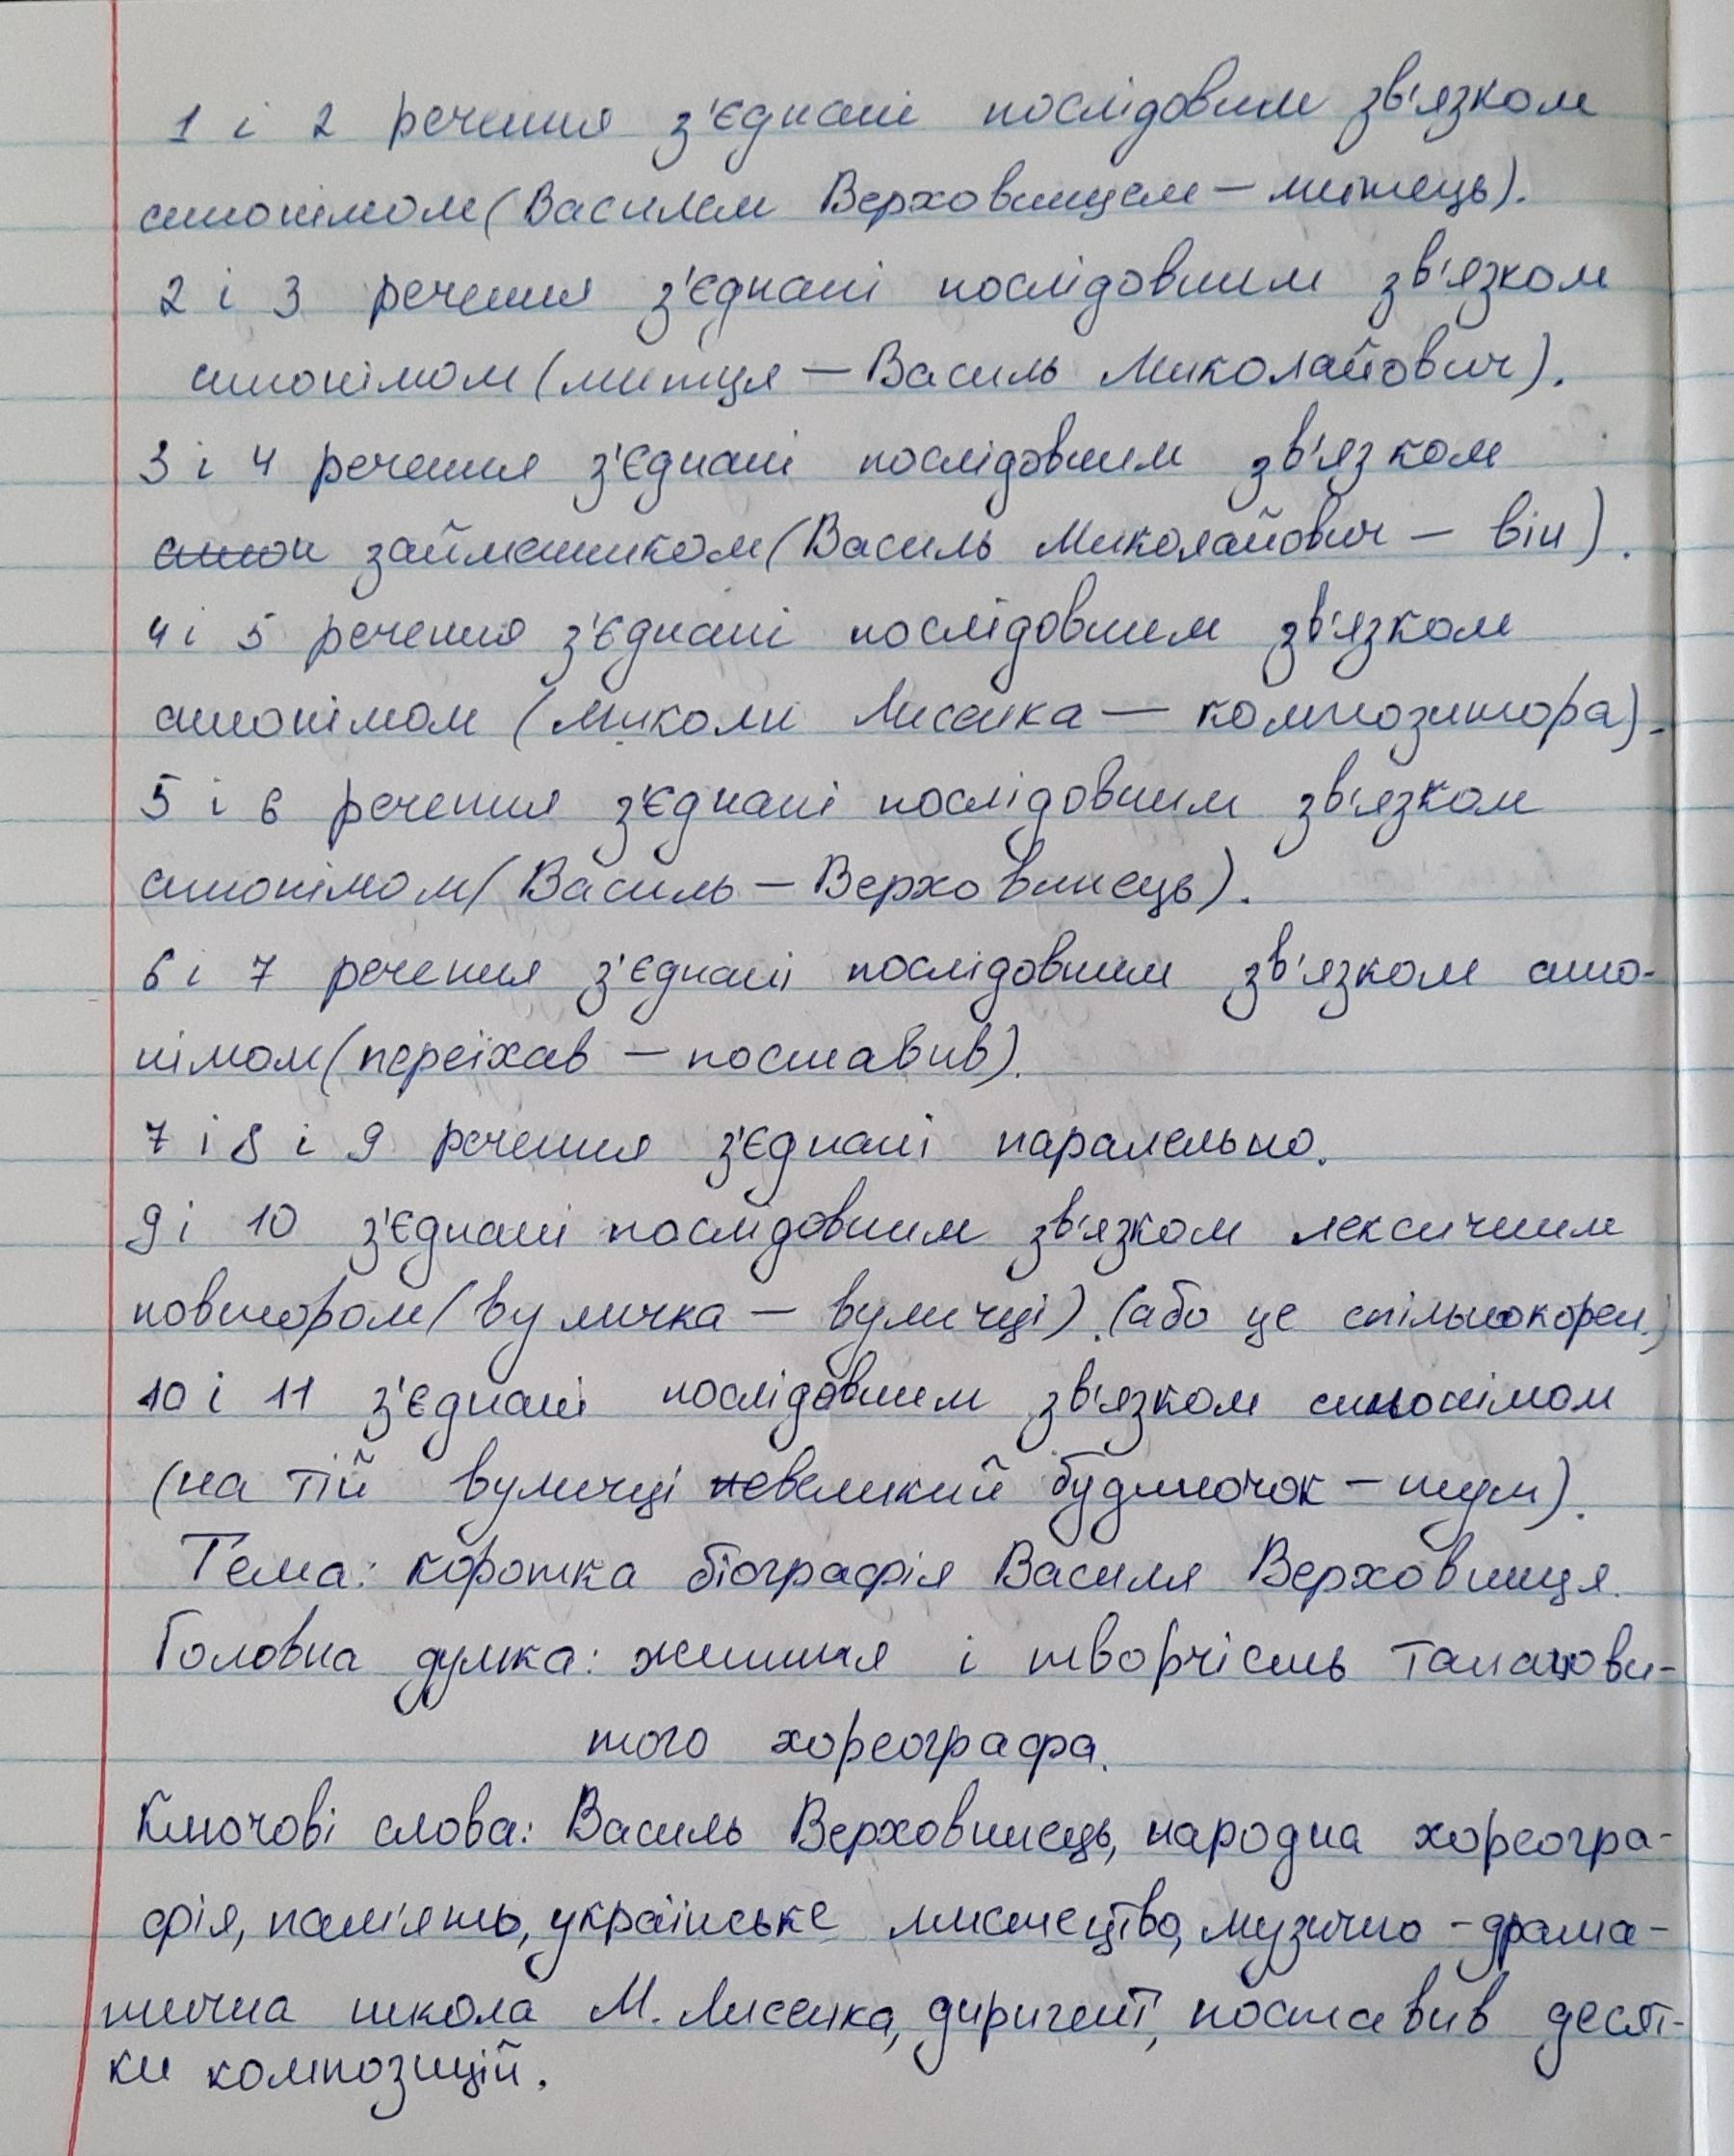 1 і 2 речення з'єднані послідовним зв'язком
синонімом (Василем Верховинцем — митець).
2 і 3 речення з'єднані послідовним зв'язком
синонімом (митця — Василь Миколайович).
3 і 4 речення з'єднані послідовним зв'язком
синон займенником (Василь Миколайович — він).
4 і 5 речення з'єднані послідовним зв'язком
синонімом (Миколи Лисенка — композитора).
5 і 6 речення з'єднані послідовним зв'язком
синонімом (Василь — Верховинець).
6 і 7 речення з'єднані послідовним зв'язком сино-
німом (переїхав — поставив).
7 і 8 і 9 речення з'єднані паралельно.
9 і 10 з'єднані послідовним зв'язком лексичним
повтором (вуличка — вуличці). (або це спільнокорен.)
10 і 11 з'єднані послідовним зв'язком синонімом
(на тій вуличці невеликий будиночок — тут).
Тема: коротка біографія Василя Верховинця.
Головна думка: життя і творчість талано­ви-
того хореографа.
Ключові слова: Василь Верховинець, народна хореогра-
фія, пам'ять, українське мистецтво, музично-драма-
тична школа М. Лисенка, диригент, поставив десят-
ки композицій.